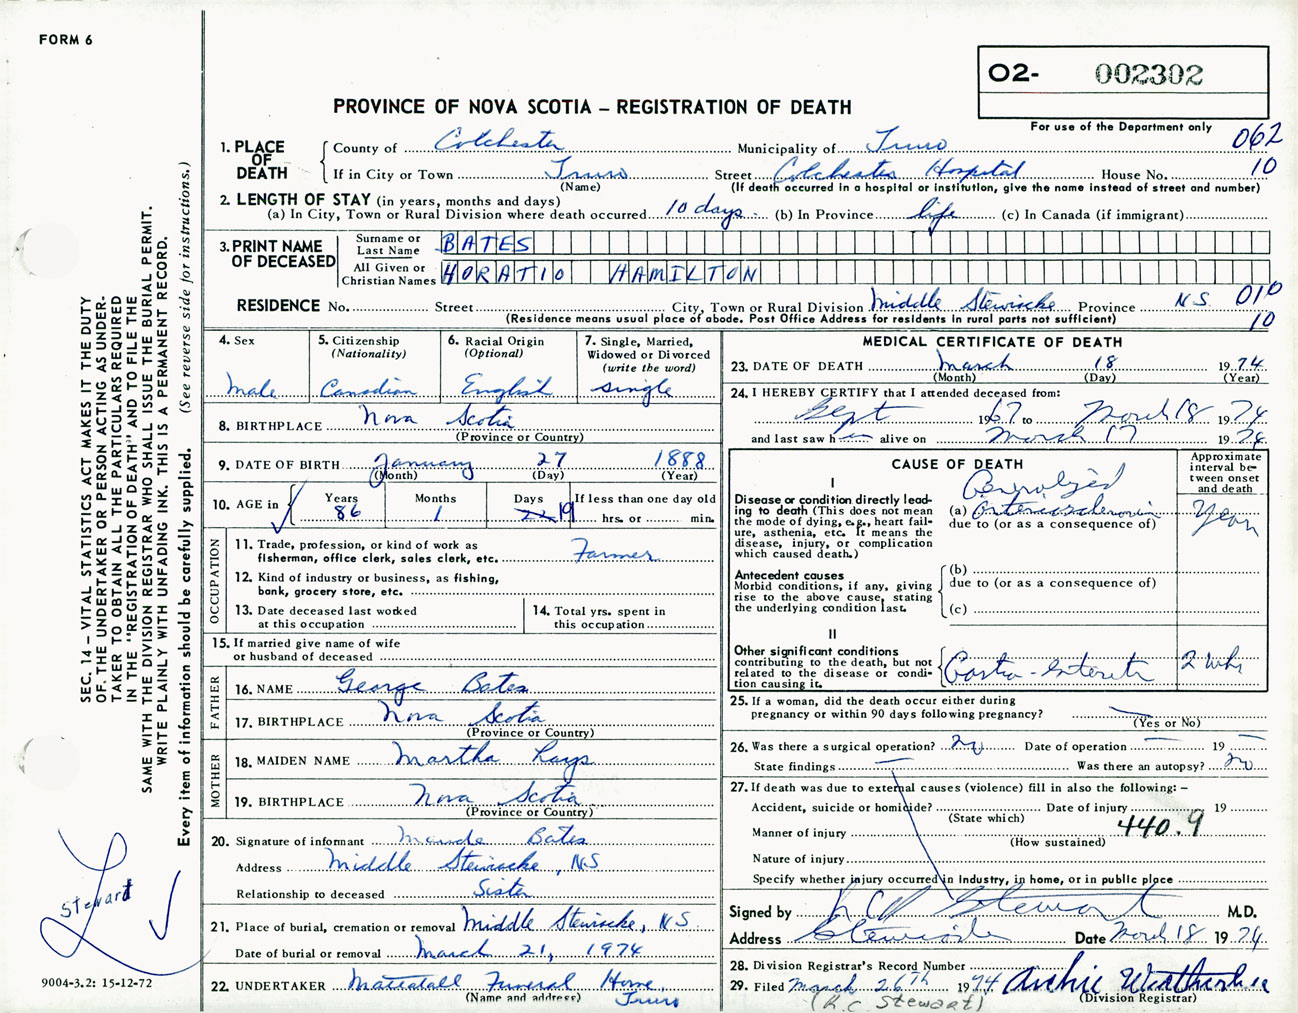 FORM 6
O2- 002302
PROVINCE OF NOVA SCOTIA – REGISTRATION OF DEATH
For use of the Department only
062
1. PLACE OF DEATH
County of Colchester Municipality of Truro
If in City or Town Truro Street Colchester Hospital House No. 10
(Name) (If death occurred in a hospital or institution, give the name instead of street and number)
2. LENGTH OF STAY (in years, months and days)
(a) In City, Town or Rural Division where death occurred 10 days (b) In Province life (c) In Canada (if immigrant)
3. PRINT NAME OF DECEASED
Surname or Last Name BATES
All Given or Christian Names HORATIO HAMILTON
RESIDENCE No. Street City, Town or Rural Division Middle Stewiacke Province N.S. 010
(Residence means usual place of abode. Post Office Address for residents in rural parts not sufficient) 10
4. Sex
Male
5. Citizenship
(Nationality)
Canadian
6. Racial Origin
(Optional)
English
7. Single, Married,
Widowed or Divorced
(write the word)
single
8. BIRTHPLACE Nova Scotia
(Province or Country)
9. DATE OF BIRTH January 27 1888
(Month) (Day) (Year)
10. AGE in Years 86 Months 1 Days 22 19 If less than one day old
hrs. or min.
OCCUPATION
11. Trade, profession, or kind of work as
fisherman, office clerk, sales clerk, etc. Farmer
12. Kind of industry or business, as fishing,
bank, grocery store, etc.
13. Date deceased last worked
at this occupation
14. Total yrs. spent in
this occupation
15. If married give name of wife
or husband of deceased
FATHER
16. NAME George Bates
17. BIRTHPLACE Nova Scotia
(Province or Country)
MOTHER
18. MAIDEN NAME Martha
19. BIRTHPLACE Nova Scotia
(Province or Country)
20. Signature of informant Maude Bates
Address Middle Stewiacke, N.S
Relationship to deceased Sister
21. Place of burial, cremation or removal Middle Stewiacke, N.S.
Date of burial or removal March 21, 1974
22. UNDERTAKER Mattatall Funeral Home,
(Name and address) Truro
MEDICAL CERTIFICATE OF DEATH
23. DATE OF DEATH March 18 1974
(Month) (Day) (Year)
24. I HEREBY CERTIFY that I attended deceased from:
Sept 1967 to March 18 1974
and last saw h alive on March 17 1974
CAUSE OF DEATH
Approximate
interval be-
tween onset
and death
I
Disease or condition directly lead-
ing to death (This does not
mean the mode of dying, e.g., heart fail-
ure, asthenia, etc. It means the
disease, injury, or complication
which caused death.)
Generalized
(a) Arteriosclerosis
due to (or as a consequence of)
Antecedent causes
Morbid conditions, if any, giving
rise to the above cause, stating
the underlying condition last.
(b)
due to (or as a consequence of)
(c)
II
Other significant conditions
contributing to the death, but not
related to the disease or condi-
tion causing it.
Gastro-Enteritis 2 wks
25. If a woman, did the death occur either during
pregnancy or within 90 days following pregnancy?
(Yes or No)
26. Was there a surgical operation? no Date of operation 19
State findings Was there an autopsy? no
27. If death was due to external causes (violence) fill in also the following: –
Accident, suicide or homicide? Date of injury 19
(State which)
440.9
Manner of injury
(How sustained)
Nature of injury
Specify whether injury occurred in Industry, in home, or in public place
Signed by Stewart M.D.
Address Stewiacke Date March 18 1974
28. Division Registrar's Record Number
29. Filed March 26th 1974 Archie
(R.C. Stewart) (Division Registrar)
SEC. 14 – VITAL STATISTICS ACT MAKES IT THE DUTY
OF THE UNDERTAKER OR PERSON ACTING AS UNDER-
TAKER TO OBTAIN ALL THE PARTICULARS REQUIRED
IN THE "REGISTRATION OF DEATH" AND TO FILE THE
SAME WITH THE DIVISION REGISTRAR WHO SHALL ISSUE THE BURIAL PERMIT.
WRITE PLAINLY WITH UNFADING INK. THIS IS A PERMANENT RECORD.
Every item of information should be carefully supplied. (See reverse side for instructions.)
Stewart
9004-3.2: 15-12-72